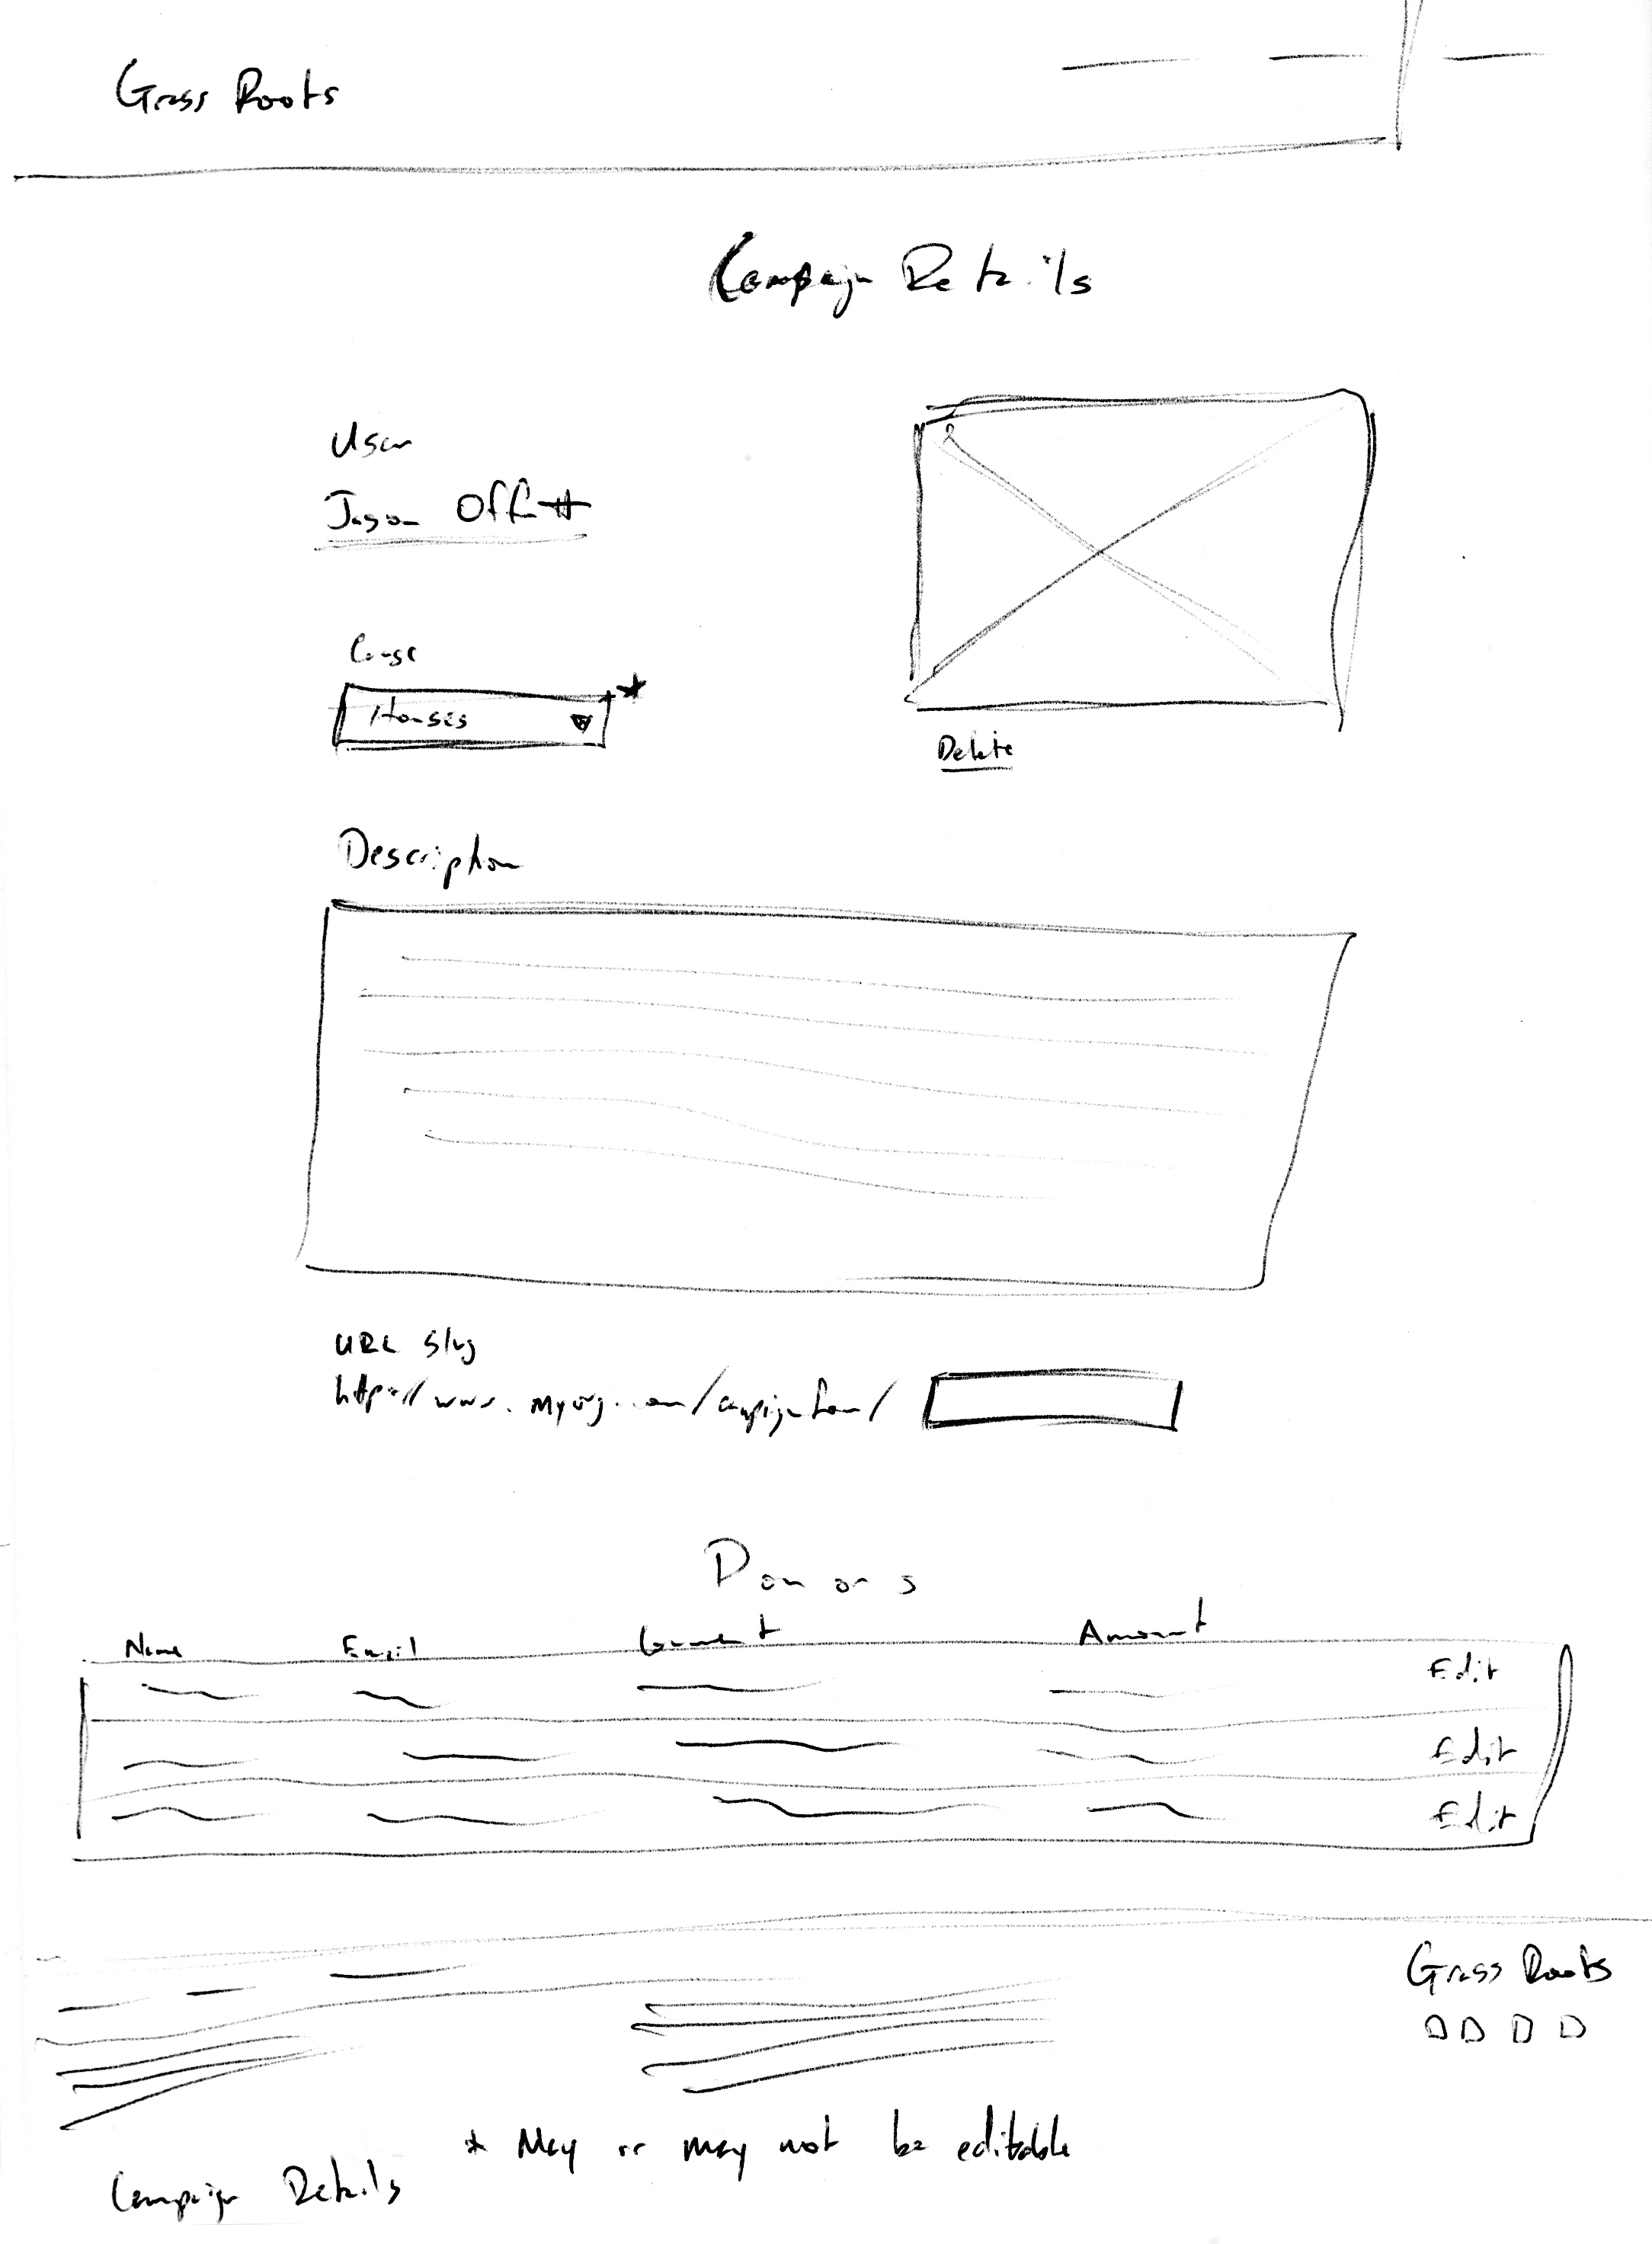 Grass Roots
Campaign Details
User
Jason Offitt
Cause
Houses *
Delete
Description
URL Slug
http://www.myorg.com/campaignform/
Donors
Name Email Comment Amount
Edit
Edit
Edit
Grass Roots
* May or may not be editable
Campaign Details